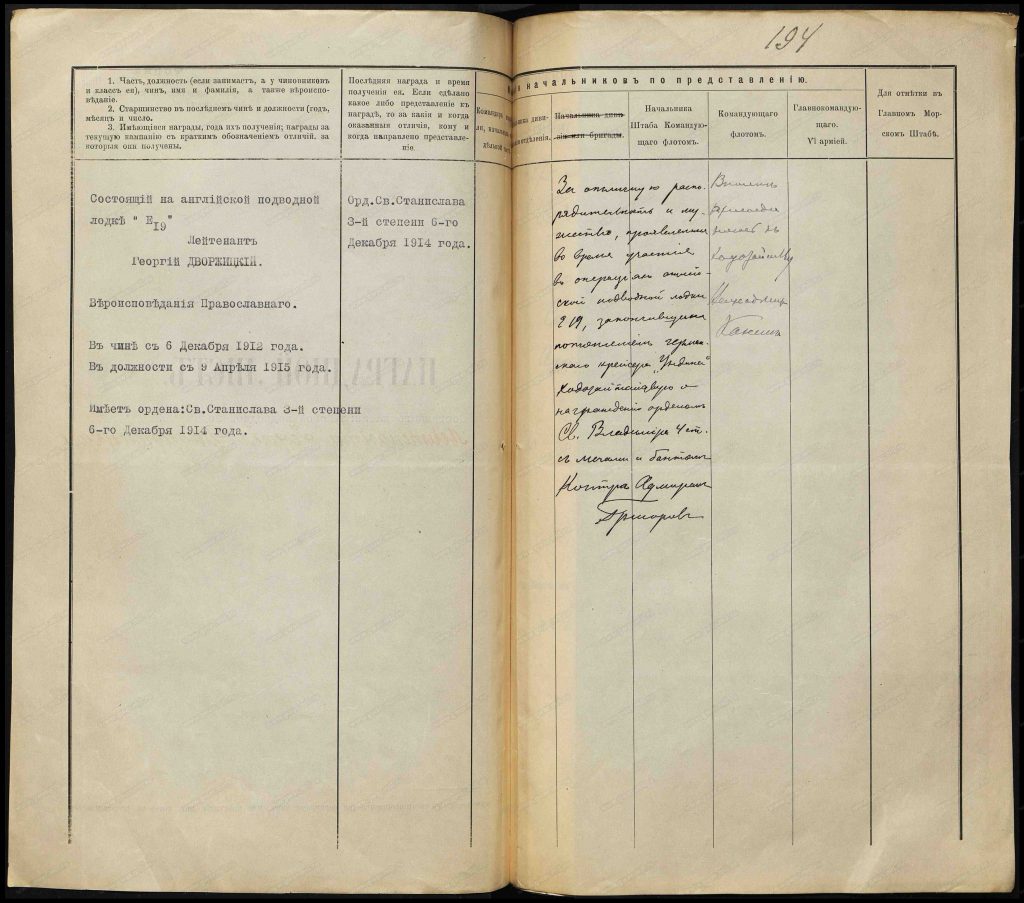 194
1. Часть, должность (если занимаетъ, а у чиновниковъ
и классъ ея), чинъ, имя и фамилія, а также вѣроиспо-
вѣданіе.
2. Старшинство въ послѣднемъ чинѣ и должности (годъ,
мѣсяцъ и число.
3. Имѣющіяся награды, года ихъ полученія; награды за
текущую кампанію съ краткимъ обозначеніемъ отличій, за
которыя онѣ получены.
Послѣдняя награда и время
полученія ея. Если сдѣлано
какое либо представленіе къ
наградѣ, то за какія и когда
оказанныя отличія, кому и
когда направлено представле-
ніе.
начальниковъ по представленію.
Начальника диви-
зіи или бригады.
Начальника
Штаба Командую-
щаго флотомъ.
Командующаго
флотомъ.
Главнокомандую-
щаго.
VI арміей.
Для отмѣтки въ
Главномъ Мор-
скомъ Штабѣ.
Состоящій на англійской подводной
лодкѣ " E19"
Лейтенантъ
Георгій ДВОРЖИЦКІЙ.
Вѣроисповѣданія Православнаго.
Въ чинѣ съ 6 Декабря 1912 года.
Въ должности съ 9 Апрѣля 1915 года.
Имѣетъ ордена:Св.Станислава 3-й степени
6-го Декабря 1914 года.
Орд.Св.Станислава
3-й степени 6-го
Декабря 1914 года.
За отличную распо-
рядительность и му-
жество, проявленныя
во время участія
въ операціяхъ англій-
ской подводной лодки
E 19, закончившихся
потопленіемъ герман-
скаго крейсера „Ундине"
ходатайствую о
награжденіи орденомъ
Св. Владиміра 4 ст.
съ мечами и бантомъ
Контръ Адмиралъ
Григоровъ
Вполнѣ
присоеди
няюсь къ
ходатайству
Вице-адмиралъ
Канинъ
НАГРАДНОЙ ЛИСТЪ.